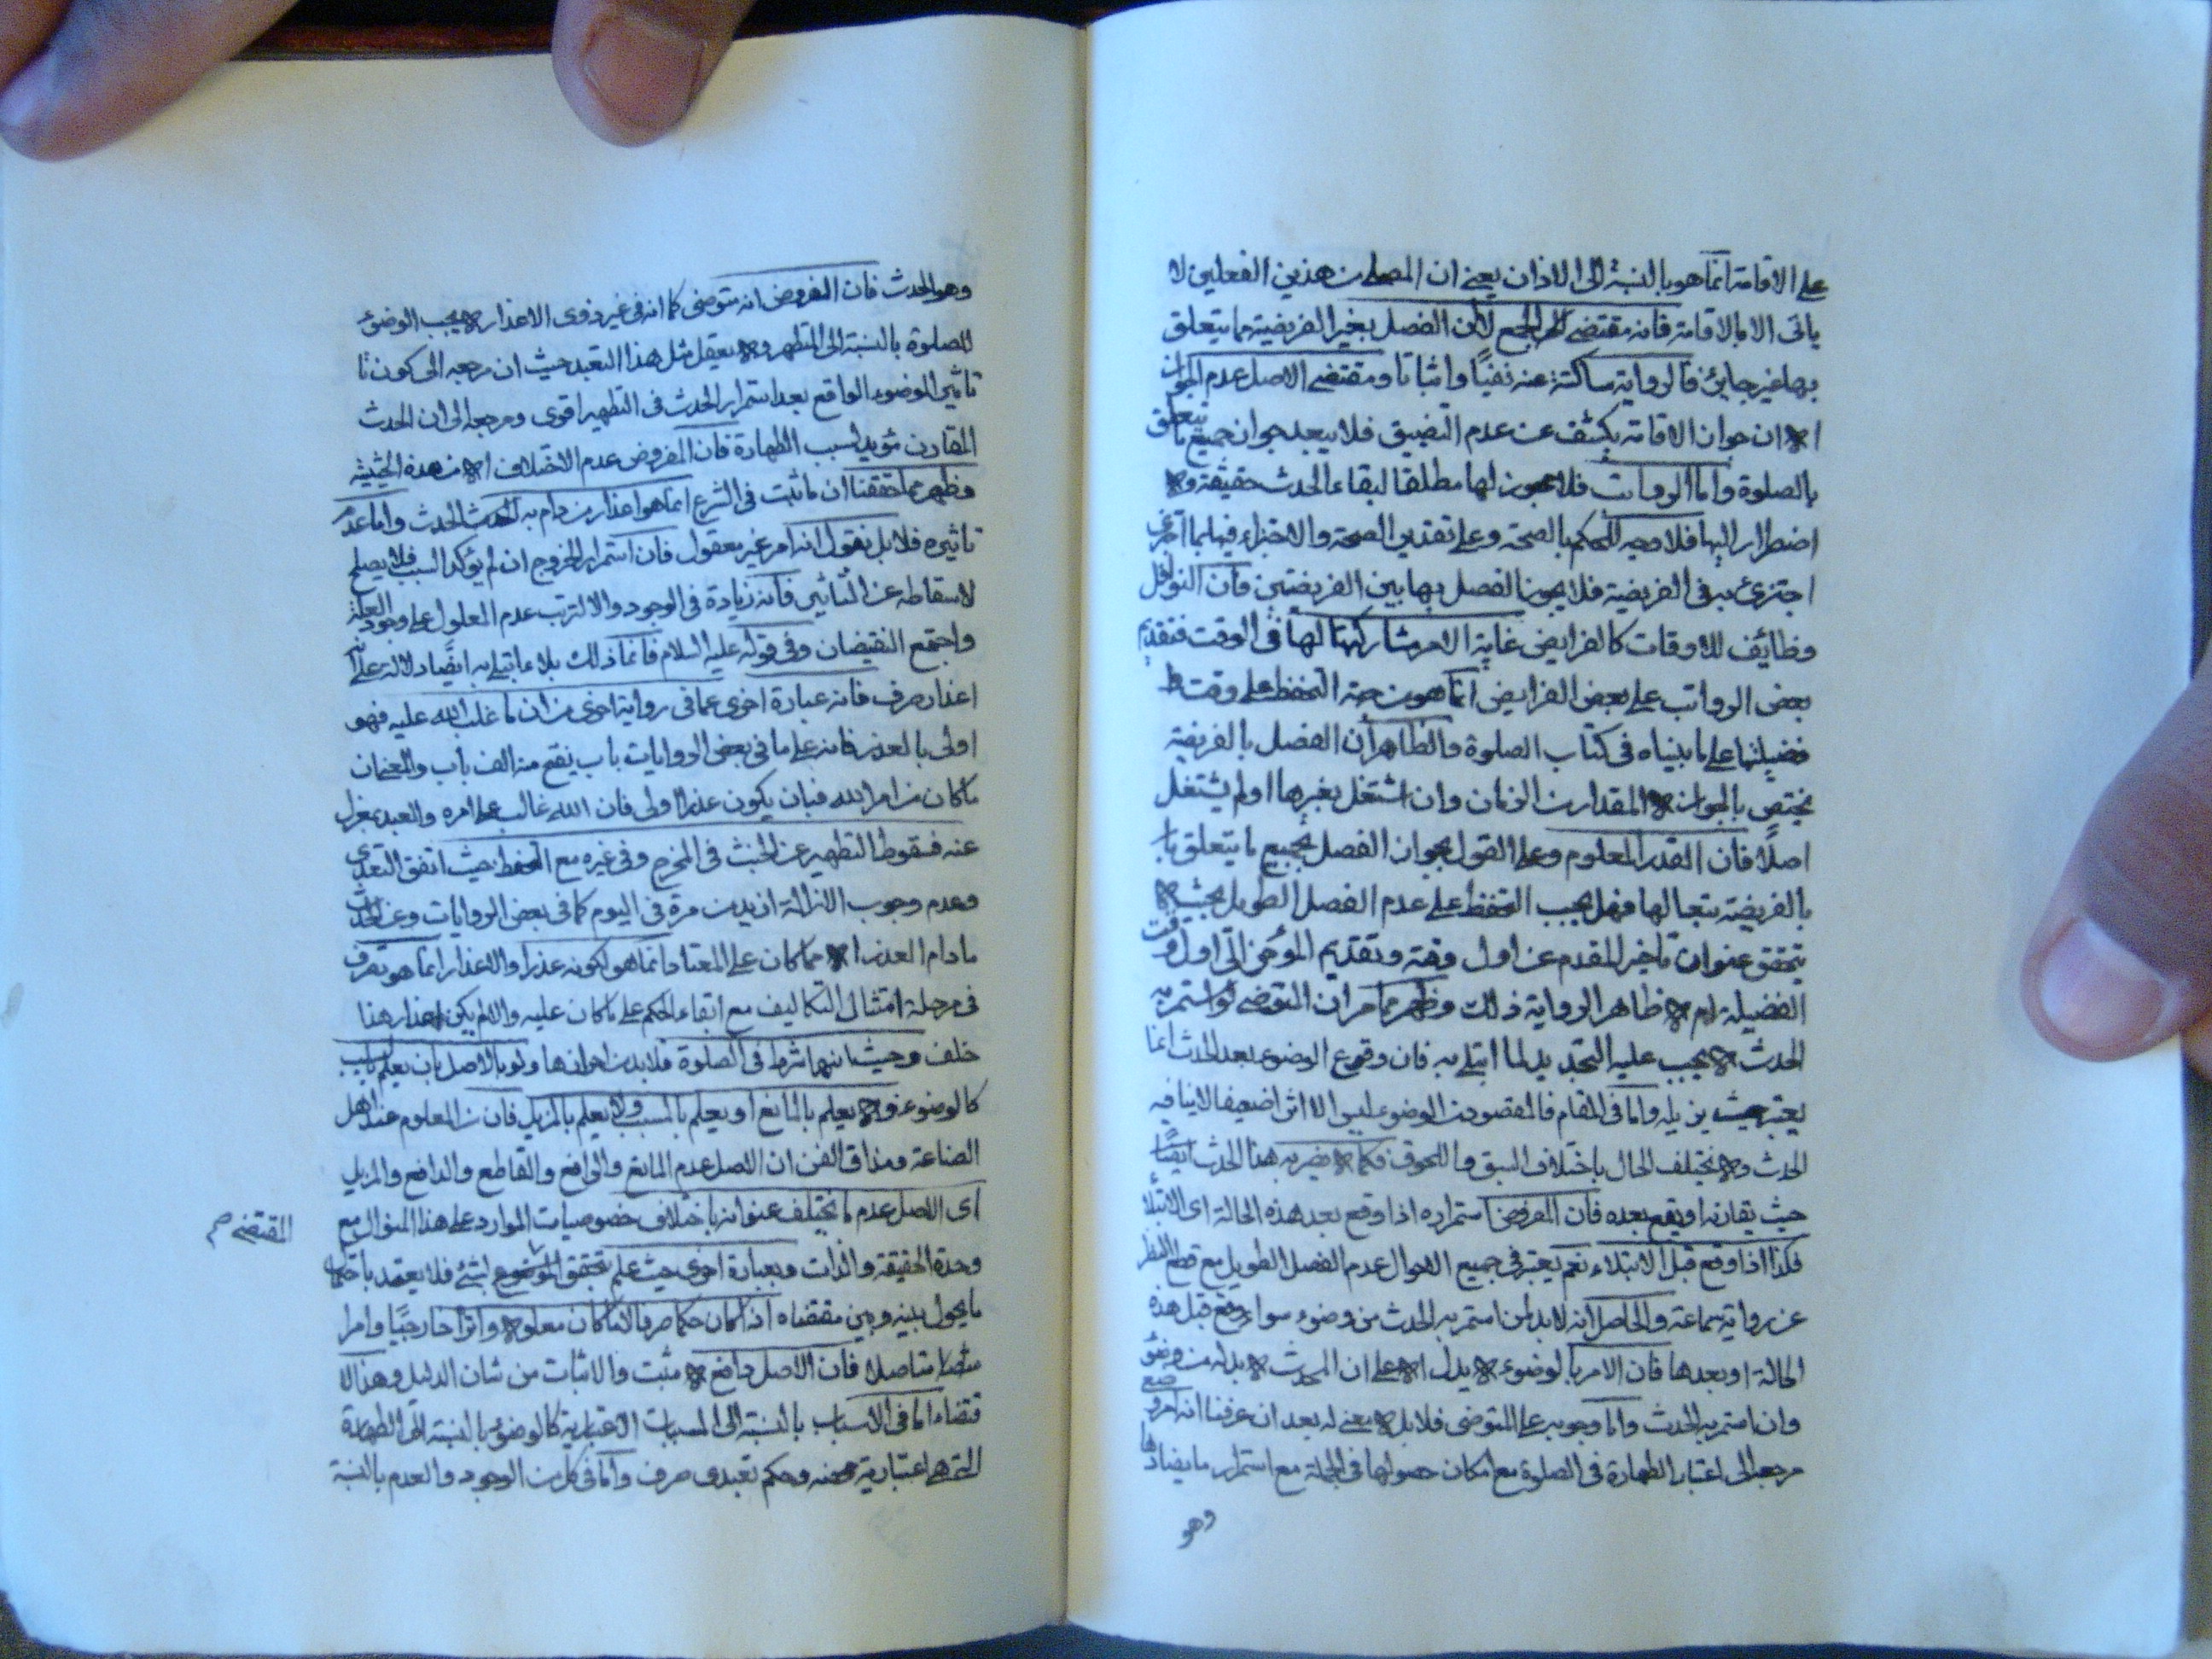 على الاقامة انما هو بالنسبة الى الاذان يعنى ان المصلى من هذين الفعلين لا
ياتى الا بالاقامة فانه مقتضى الجمع لان الفصل بغير الفريضة مما يتعلق
بها غير جايز فالرواية ساكتة عنه نفيًا واثباتا ومقتضى الاصل عدم الجواز
الا ان جواز الاقامة يكشف عن عدم التضييق فلا يبعد جواز جميع ما يتعلق
بالصلوة واما الرواتب فلا يجوز لها مطلقا لبقاء الحدث حقيقة ولا
اضطرار اليها فلا وجه للحكم بالصحة وعلى تقدير الصحة والاجتزاء فيها بما
اجتزئ به فى الفريضة فلا يجوز الفصل بها بين الفريضتين فان النوافل
وظائف للاوقات كالفرايض غاية الامر مشاركتها لها فى الوقت فتقديم
بعض الرواتب على بعض الفرايض انما هو من جهة التحفظ على وقت
فضيلتها على ما بيناه فى كتاب الصلوة والظاهر ان الفصل بالفريضة
يختص بالجواز لا المقدار من الزمان وان اشتغل بغيرها او لم يشتغل
اصلًا فان القدر المعلوم وعلى القول بجواز الفصل بجميع ما يتعلق
بالفريضة تبعا لها فهل يجب التحفظ على عدم الفصل الطويل بحيث لا
يتحقق عنوان تاخير المقدم عن اول وقته وتقديم المؤخر الى اول وقت
الفضيلة ام لا ظاهر الرواية ذلك وظهر مما مر ان المتوضى لو استمر به
الحدث لا يجب عليه التجديد لما ابتلى به فان وقوع الوضوء بعد الحدث انما
يعتبر حيث يزيله واما فى المقام فالمقصود من الوضوء ليس الا اثرا ضعيفا لا ينافيه
الحدث ولا يختلف الحال باختلاف السبق واللحوق فكما لا يضر به هذا الحدث ايضًا
حيث يقارنه او يقع بعده فان المفروض استمراره اذا وقع بعد هذه الحالة اى الابتلاء
فكذا اذا وقع قبل الابتلاء نعم يعتبر فى جميع الاحوال عدم الفصل الطويل مع قطع النظر
عن رواية سماعة والحاصل انه لا بد لمن استمر به الحدث من وضوء سواء وقع قبل هذه
الحالة او بعدها فان الامر بالوضوء لا يدل الا على ان المحدث لا بد له من وضوء
وان استمر به الحدث واما وجوبه على المتوضى فلا بل لا معنى له بعد ان عرفنا انه امر وضعى
مرجعه الى اعتبار الطهارة فى الصلوة مع امكان حصولها فى الجملة مع استمرار ما يضادها
وهو
وهو الحدث فان المفروض انه متوضى كما انه فى غير ذوى الاعذار لا يجب الوضوء
للصلوة بالنسبة الى المتطهر ولا يعقل مثل هذا التعبد حيث ان مرجعه الى كون
تاثير الوضوء الواقع بعد استمرار الحدث فى التطهير اقوى ومرجعه الى ان الحدث
المقارن مؤيد لسبب الطهارة فان المفروض عدم الاختلاف الا من هذه الحيثية
وظهر مما حققنا ان ما ثبت فى الشرع انما هو اعذار من دام به الحدث واما عدم
تاثيره فلا بل نقول انه امر غير معقول فان استمرار الخروج ان لم يؤكد السبب فلا يصلح
لاسقاطه عن التاثير فانه زيادة فى الوجود والا لترتب عدم المعلول على وجود العلة
واجتمع النقيضان وفى قوله عليه السلام فانما ذلك بلاء ابتلى به ايضًا دلالة على انه
اعذار صرف فانه عبارة اخرى عما فى رواية اخرى من ان ما غلب الله عليه فهو
اولى بالعذر فانه على ما فى بعض الروايات باب يفتح منه الف باب والمعنى ان
ما كان من امر الله فبان يكون عذرا اولى فان الله غالب على امره والعبد بمعزل
عنه فسقوط التطهير عن الخبث فى المخرج وفى غيره مع التحفظ حيث اتفق التعدى
وعدم وجوب الازالة ازيد من مرة فى اليوم كما فى بعض الروايات وعن الحدث
ما دام العذر الا مما كان على المعتاد انما هو لكونه عذرا والاعذار انما هو تصرف
فى مرحلة امتثال التكاليف مع ابقاء الحكم على ما كان عليه والا لم يكن اعذار هذا
خلف وحيث انها شرط فى الصلوة فلا بد من احرازها ولو بالاصل بان يعلم بالسبب
كالوضوء ولا يعلم بالمانع او يعلم بالسبب ولا يعلم بالمزيل فان من المعلوم عند اهل
الصناعة ومذاق الفن ان الاصل عدم المانع والرافع والقاطع والدافع والمزيل
اى الاصل عدم ما يختلف عنوانه باختلاف خصوصيات الموارد على هذا المنوال مع
المقتضى صح
وحدة الحقيقة والذات وبعبارة اخرى حيث علم تحقق لشئ فلا يعتد باحتمال
ما يحول بينه وبين مقتضاه اذا كان حكما صرفا لا ما كان معلولا واثرا خارجيًا وامرا
متاصلا فان الاصل دافع لا مثبت والاثبات من شان الدليل وهذا الا
قتضاء اما فى الاسباب بالنسبة الى المسببات الاعتبارية كالوضوء بالنسبة الى الطهارة
التى هى اعتبارية محضه وحكم تعبدى صرف واما فى كل من الوجود والعدم بالنسبة